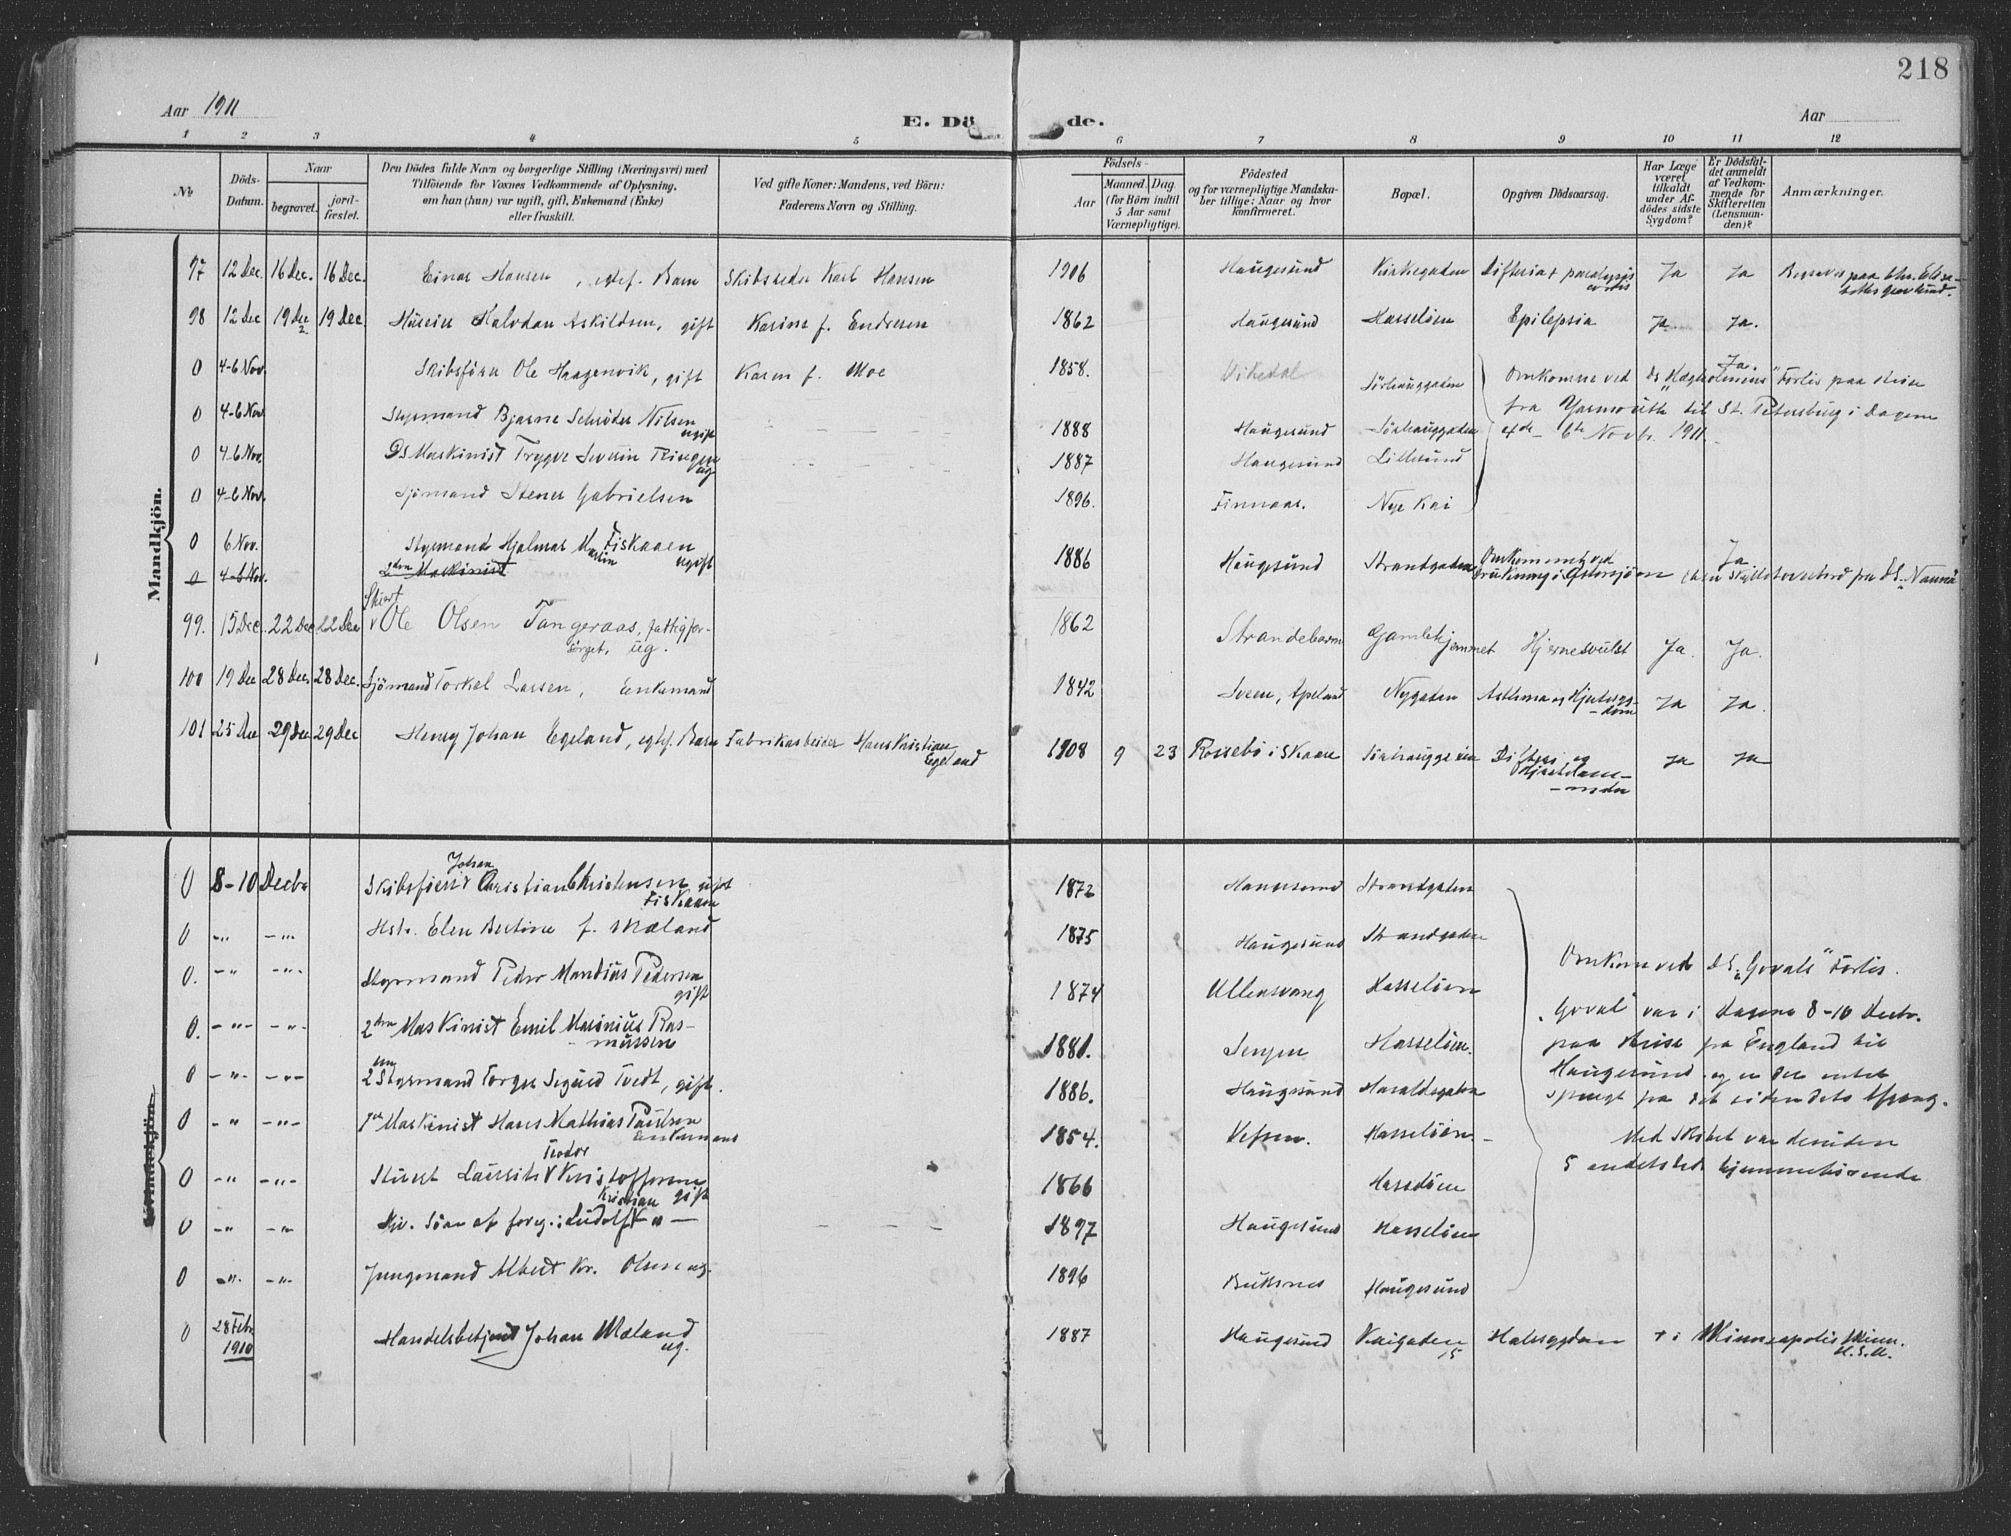 218
Aar 1911
E. Dö de.
Aar
1 2 3 4 5 6 7 8 9 10 11 12
No
Döds-Datum.
Naar
begravet.
jord-fæstet.
Den Dödes fulde Navn og borgerlige Stilling (Næringsvei) med
Tilföiende for Voxnes Vedkommende af Oplysning,
om han (hun) var ugift, gift, Enkemand (Enke)
eller fraskilt.
Ved gifte Koner: Mandens, ved Börn:
Faderens Navn og Stilling.
Födsels-
Aar
Maaned. Dag.
(for Börn indtil
5 Aar samt
Værnepligtige).
Födested
og for værnepligtige Mandska-
ber tillige: Naar og hvor
konfirmeret.
Bopæl.
Opgiven Dödsaarsag.
Har Læge
været
tilkaldt
under Af-
dödes sidste
Sygdom?
Er Dödsfal-
det anmeldt
af Vedkom-
mende for
Skifteretten
(Lensman-
den)?
Anmærkninger.
Mandkjön.
97 12 Dec. 16 Dec. 16 Dec. Einar Hansen, egtef. Barn Skibsreder Karl Hansen 1906 Haugesund Kirkegaden Difteria + paralysis cordis Ja Ja
98 12 Dec 19 Dec 19 Dec. Huseier Halvdan Askildsen, gift Karine f. Endresen 1862 Haugesund Hasselöen Epilepsia Ja. Ja.
0 4-6 Nov. Skibsförer Ole Haagenvik, gift Karen f. Moe 1858. Vikedal Sörhauggaden Omkomne ved DS "Hægholmens" Forlis paa Reise Ja.
fra Yarmouth til St. Petersburg i Dagene
4de - 6te Novbr. 1911.
0 4-6 Nov. Styrmand Bjarne Schröder Nilsen ugift 1888 Haugesund Sörhauggaden
0 4-6 Nov. DS Maskinist Trygve Severin ug. 1887 Haugesund Lillesund
0 4-6 Nov. Sjömand Stener Gabrielsen 1896. Finnaas. Nye Kai
0 6 Nov. Styrmand Hjalmar Marin Fiskaaen ugift 1886 Haugesund Strandgaden Omkommet ved Ja
0 4-6 Nov. 2den Maskinist
99. 15 Dec. 22 Dec 22 Dec Ole Olsen Tangeraas, fattigfor-
sörget, ug. 1862 Strandebarm Gamlehjemmet Hjernesvulst Ja. Ja.
100 19 Dec 28 Dec. 28 Dec. Sjömand Torkel Larsen, Enkemand 1842 Sveen, Apeland Nygaden Asthma og Hjertesyg-
dom Ja Ja.
101 25 Dec 29 Dec 29 Dec Henry Johan Egeland, egtef. Barn Fabrikarbeider Hans Kristian
Egeland 1908 9 23 Rossebö i Skaare Sörhauggaden Difteri og Ja Ja
Kvindekjön.
0 8-10 Decbr Skibsförer Johan Christian Christensen gift
Fiskaaen 1872 Haugesund Strandgaden
0 -"- -"- Hstr. Elen Bertine f. Mæland 1875 Haugesund Strandgaden
0. -"- -"- Styrmand Peder Mandius Pedersen
gift 1874 Ullensvang Hasselöen
0. -"- -"- 2den Maskinist Emil Marinius Ras-
mussen 1881. Hasselöen.
0 -"- -"- 2den Styrmand Torger Sigurd Tvedt, gift. 1886. Haugesund Haraldsgaden
0 -"- -"- 1ste Maskinist Hans Mathias Paulsen
Enkemand 1854. Vefsen. Hasselöen
0 -"- -"- Stuert Lauritz Teodor Kristoffersen
gift 1866 Hasselöen
0 -"- -"- Söan af foreg.: Ludolf Kristian 1897 Haugesund Hasselöen
0 -"- -"- Jungmand Albert Kr. Olsen ug. 1896 Buksnes Haugesund
Omkom ved DS. "Govals" Forlis.
"Goval" var i Dagene 8-10 Decbr.
paa Reise fra England til
Haugesund og er det antat
sprugt
Med Skibet var desuden
5 andetsteds hjemmehörende
0 28 Febr.
1910 Handelsbetjent Johan Mæland
ug. 1887 Haugesund Kaigaden
15 Halssygdom + i Minneapolis Minn.
U.S.A.